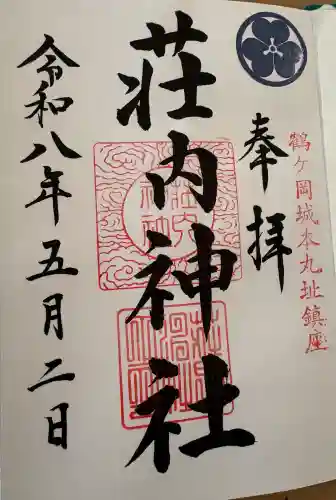 鶴ヶ岡城本丸址鎮座
奉拝
荘内神社
令和八年五月二日